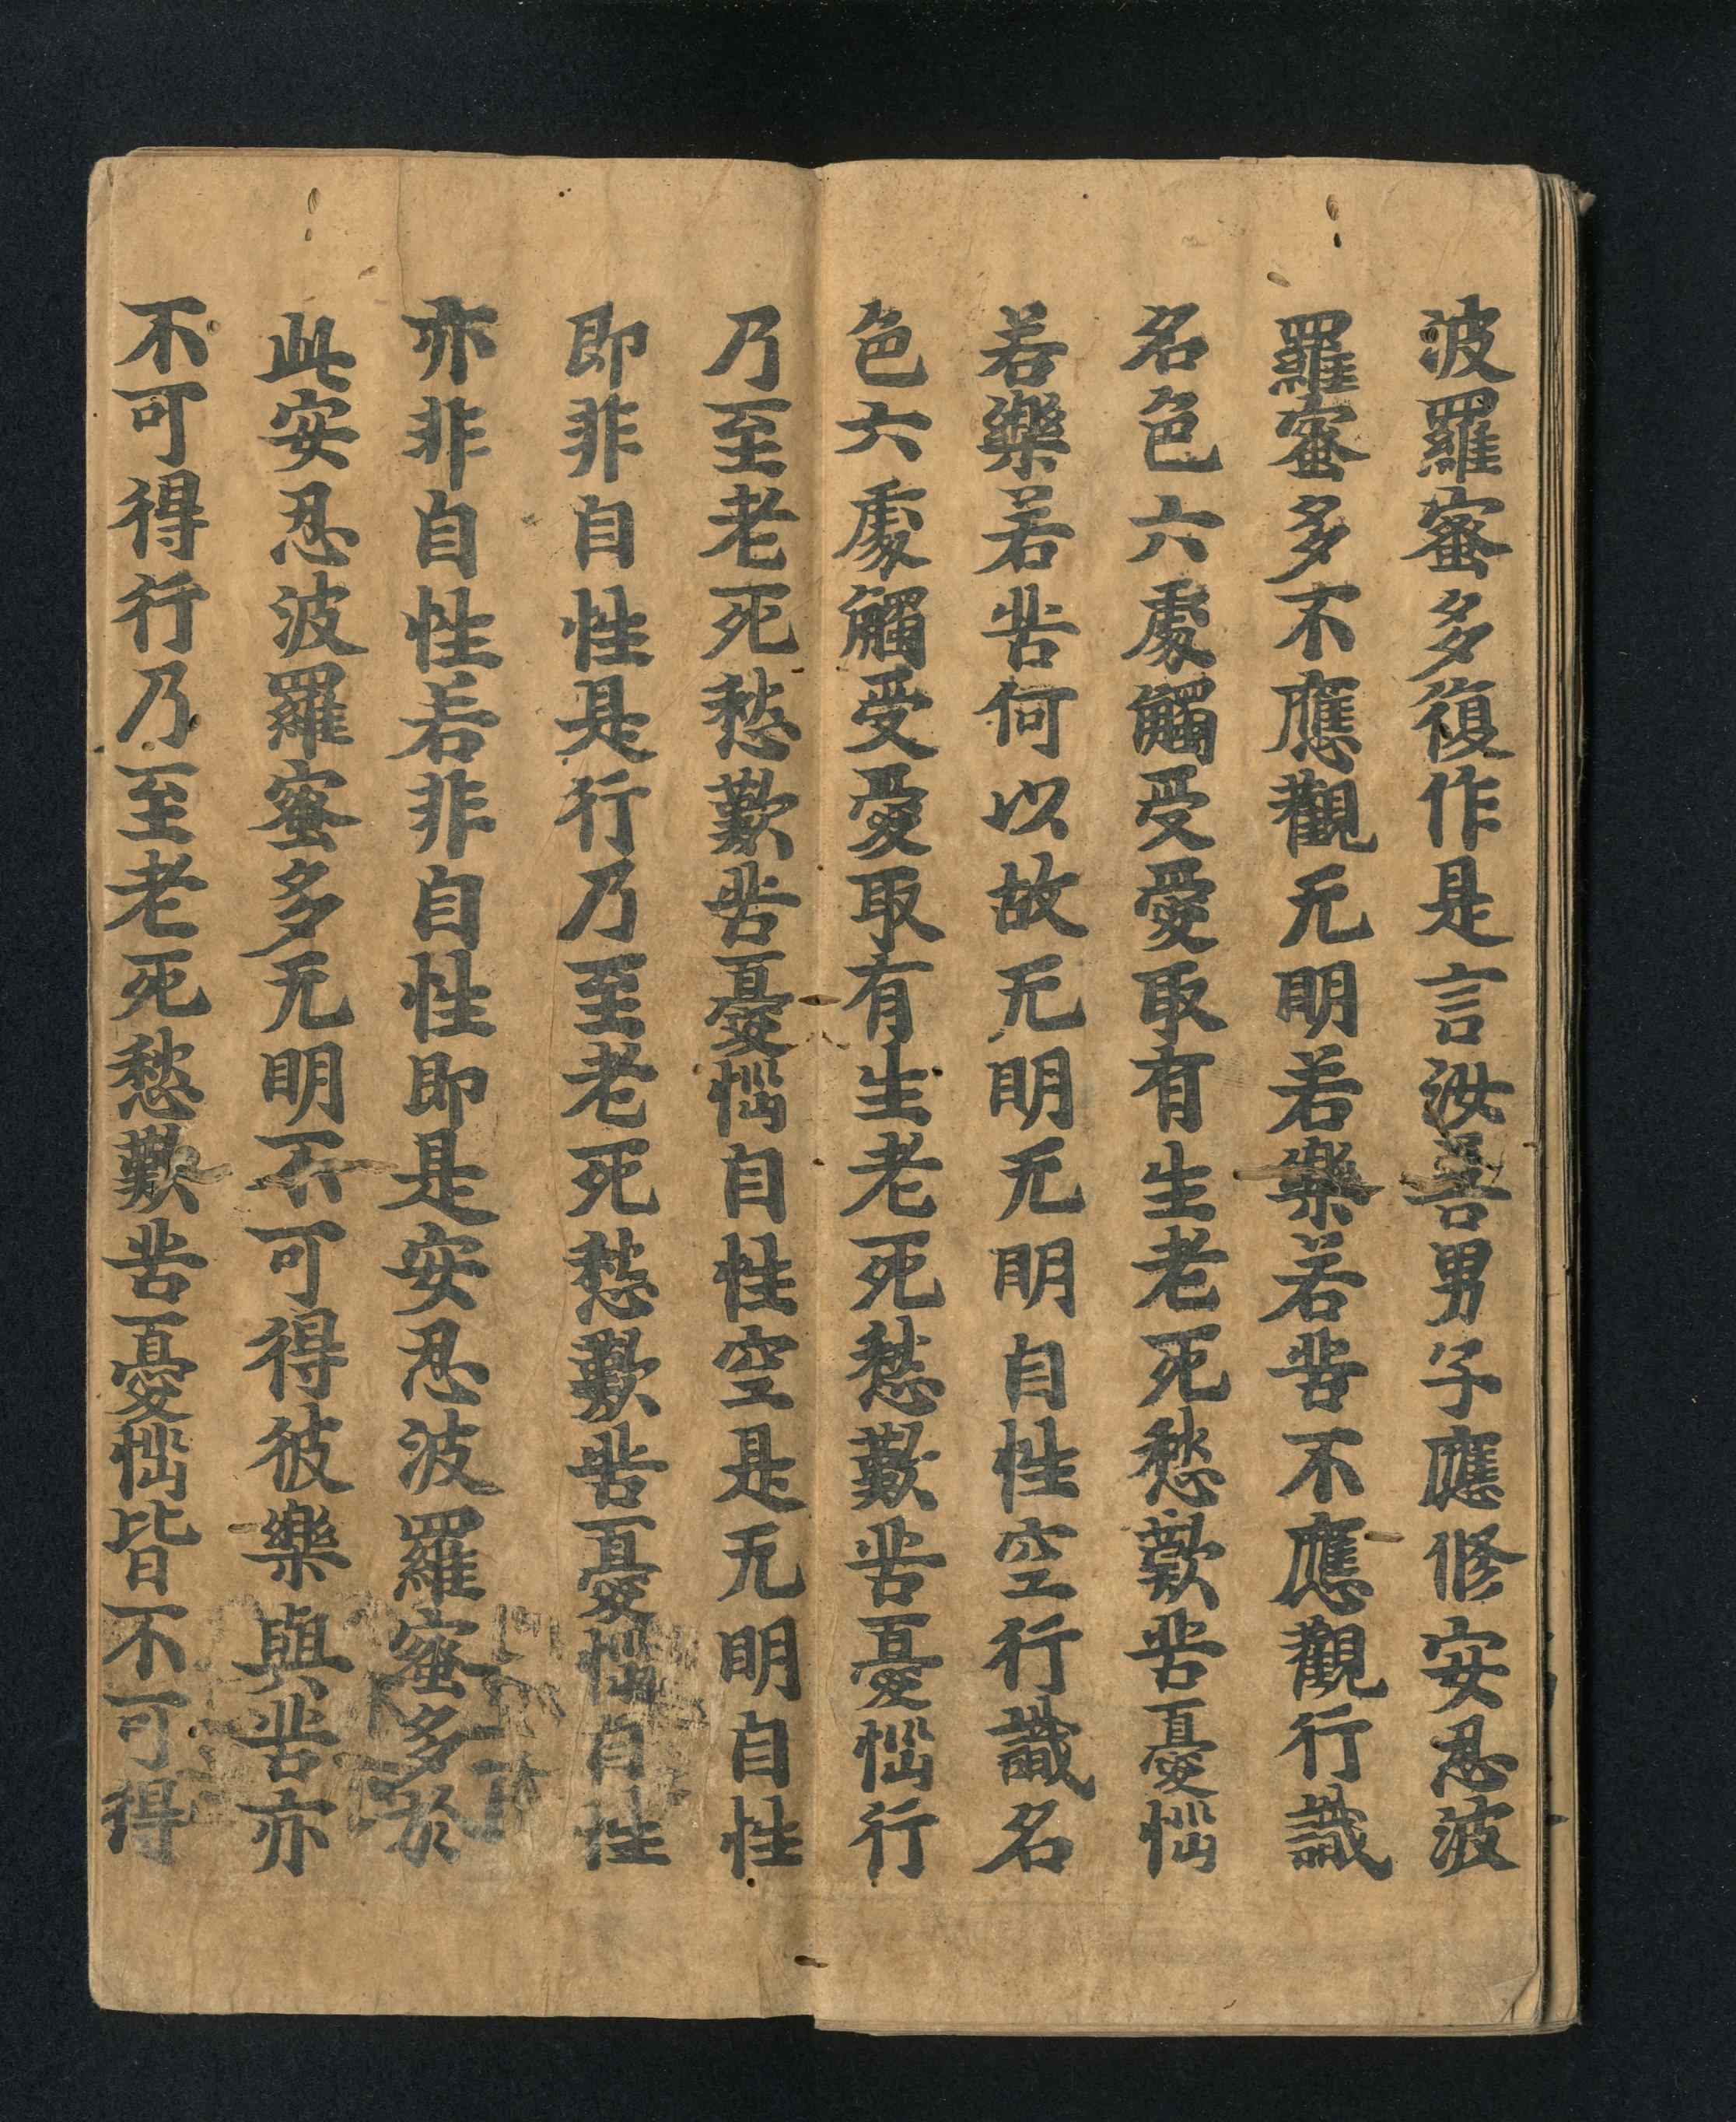 波羅蜜多復作是言汝善男子應修安忍波
羅蜜多不應觀无明若樂若苦不應觀行識
名色六處觸受愛取有生老死愁歎苦憂惱
若樂若苦何以故无明无明自性空行識名
色六處觸受愛取有生老死愁歎苦憂惱行
乃至老死愁歎苦憂惱自性空是无明自性
即非自性是行乃至老死愁歎苦憂惱自性
亦非自性若非自性即是安忍波羅蜜多於
此安忍波羅蜜多无明不可得彼樂與苦亦
不可得行乃至老死愁歎苦憂惱皆不可得